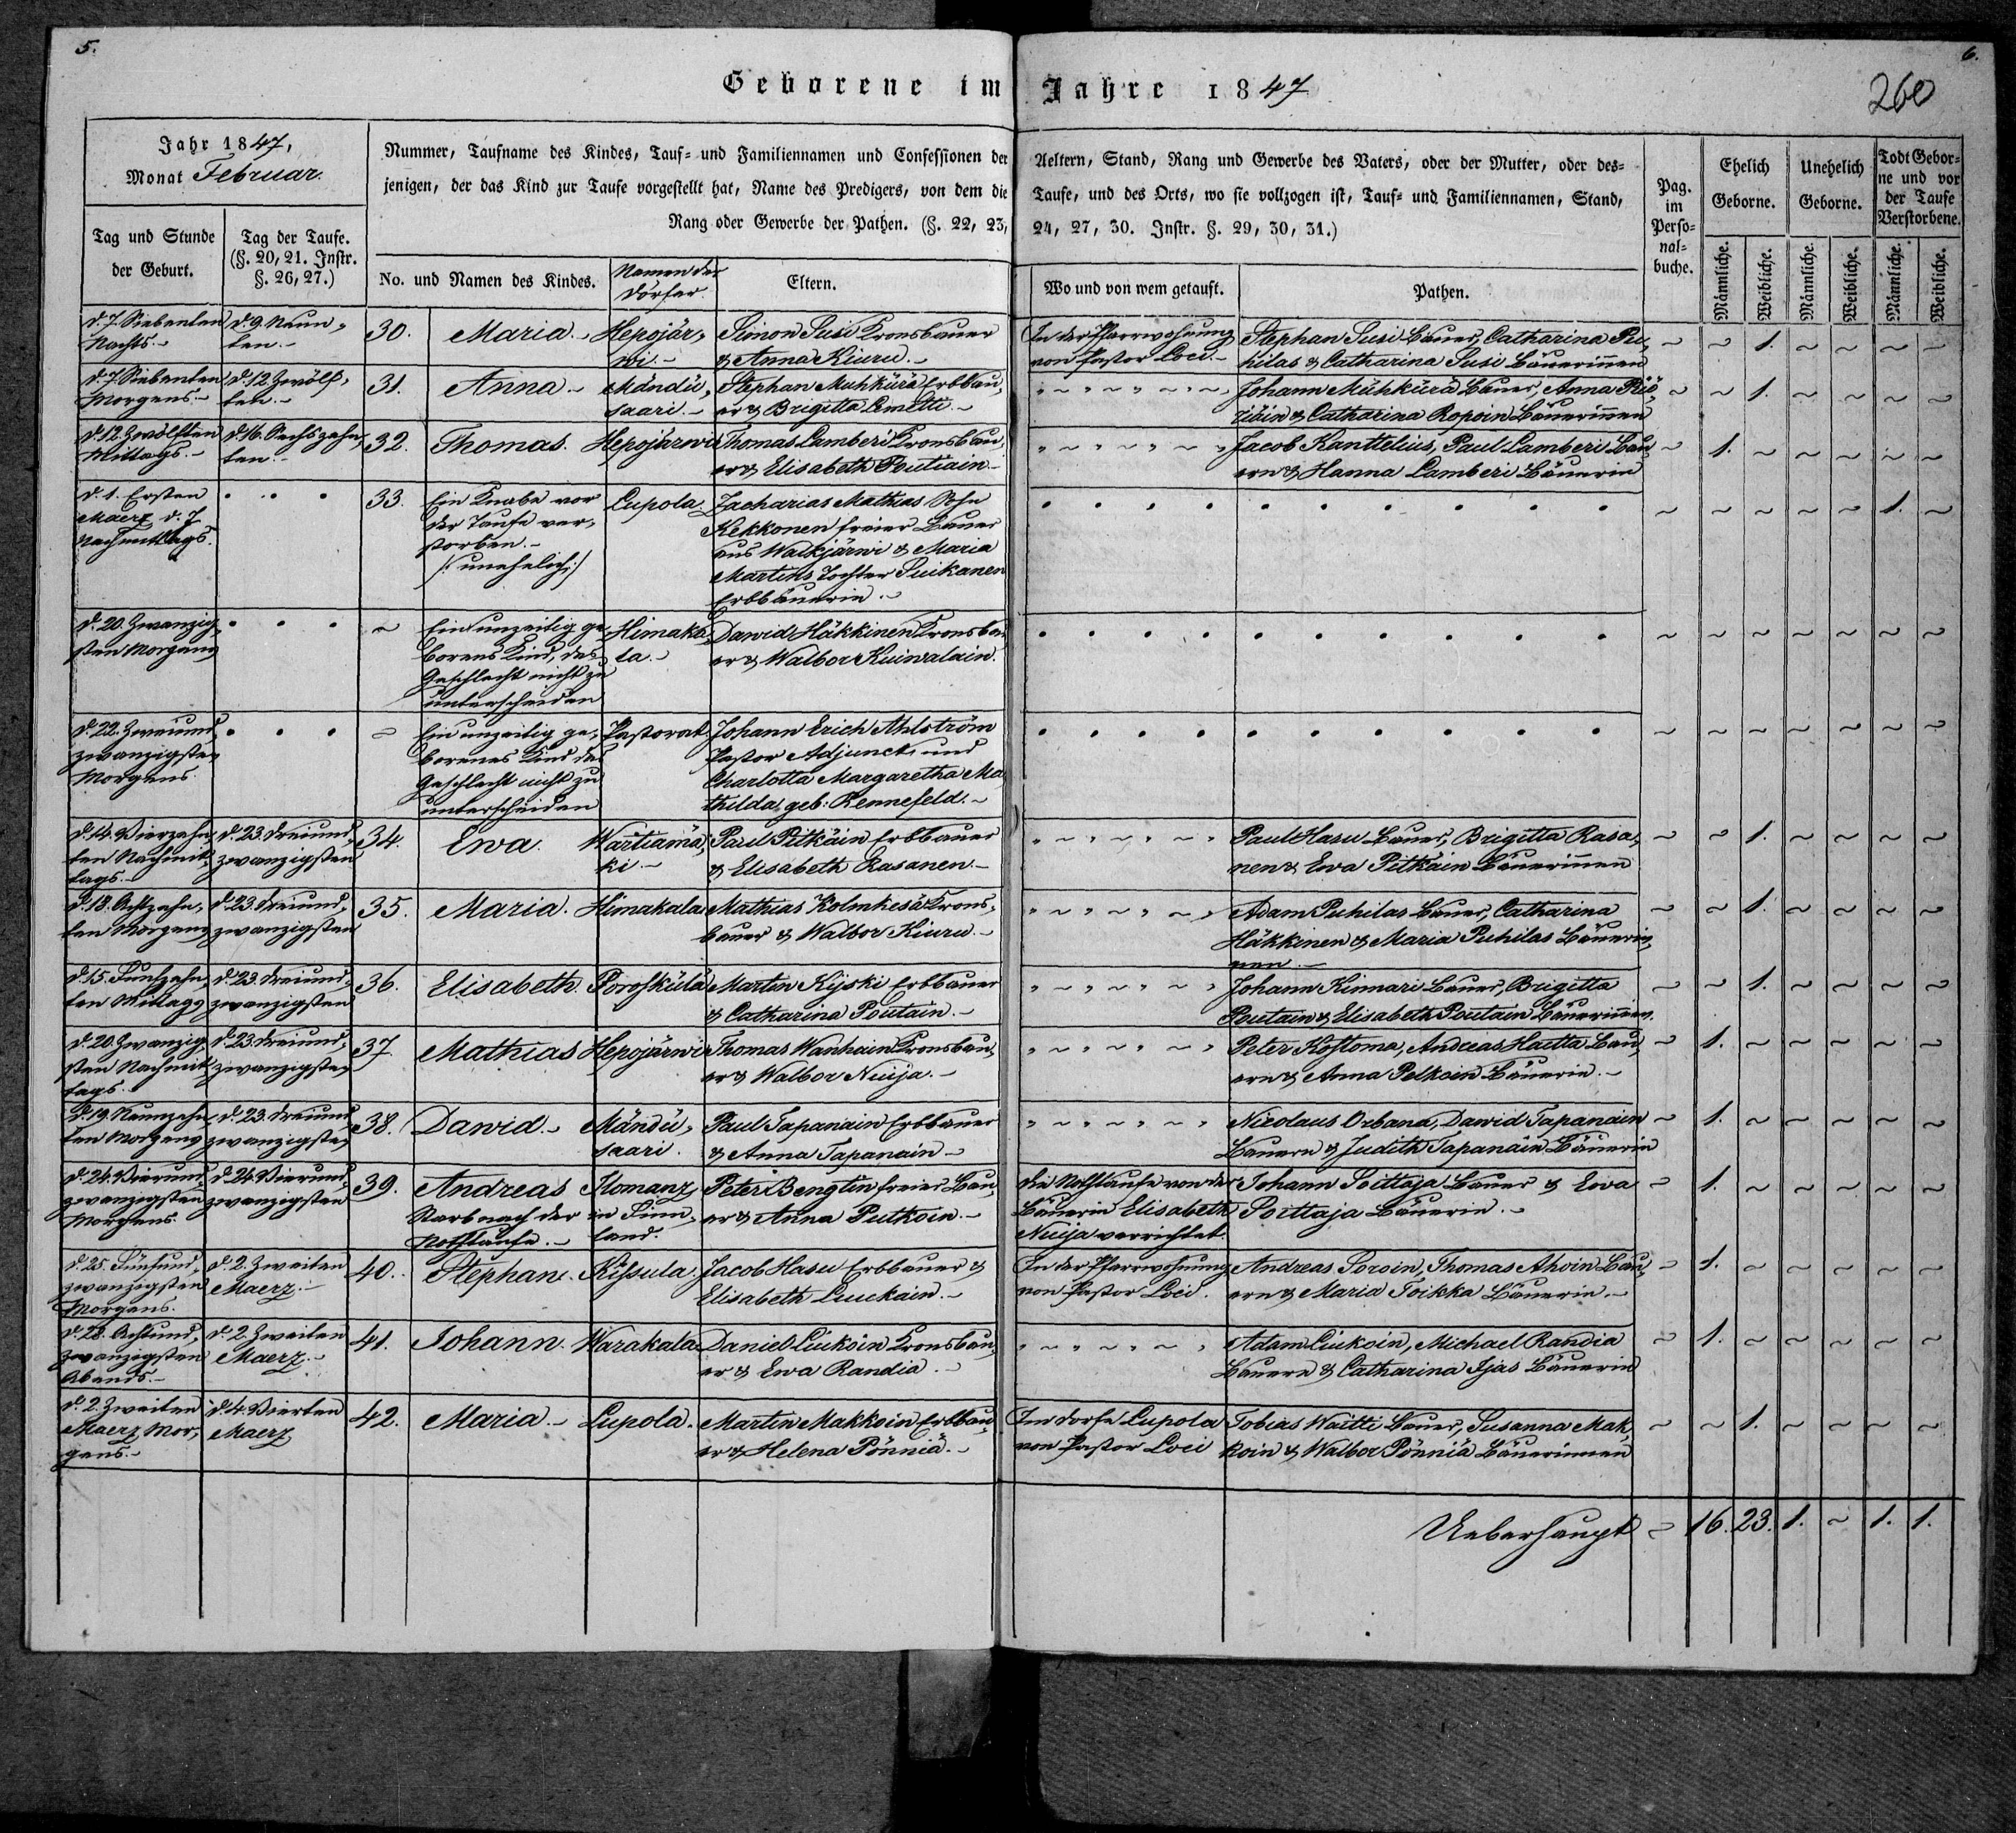 5.
6.
Geborene im Jahre 1847
260
Jahr 1847,
Monat Februar.
Tag und Stunde
der Geburt.
Tag der Taufe.
(§. 20, 21. Instr.
§. 26, 27.)
Nummer, Taufname des Kindes, Tauf= und Familiennamen und Confessionen der
jenigen, der das Kind zur Taufe vorgestellt hat, Name des Predigers, von dem die
Rang oder Gewerbe der Pathen. (§. 22, 23,
No. und Namen des Kindes.
Namen der
Dörfer.
Eltern.
Aeltern, Stand, Rang und Gewerbe des Vaters, oder der Mutter, oder des=
Taufe, und des Orts, wo sie vollzogen ist, Tauf= und Familiennamen, Stand,
24, 27, 30. Instr. §. 29, 30, 31.)
Wo und von wem getauft.
Pathen.
Pag.
im
Perso=
nal=
buche.
Ehelich
Geborne.
Unehelich
Geborne.
Todt Gebor=
ne und vor
der Taufe
Verstorbene.
Männliche.
Weibliche.
Männliche.
Weibliche.
Männliche.
Weibliche.
d. 7. Siebenten
Nachts.
d. 9. Neun-
ten.
30. Maria.
Hepojär-
wi.
Simon Susi Kronsbauer
& Anna Kiuru.
In der Pfarrwohnung
von Pastor Loci.
Stephan Susi Bauer, Catharina Pu-
hilas & Catharina Susi Bäuerinnen
1.
d. 7. Siebenten
Morgens.
d. 12. Zwölf-
ten.
31. Anna.
Mändü-
saari.
Stephan Muhkürä Erbbau-
er & Brigitta Lemetti.
Johann Muhkürä Bauer, Anna
& Catharina Ropoin Bäuerinnen
1.
d. 12. Zwölften
Mittags.
d. 16. Sechszehn-
ten.
32. Thomas.
Hepojärwi
Thomas Lamberi Kronsbau-
er & Elisabeth Poutiain
Jacob Kanttelius, Paul Lamberi Bau-
ern & Hanna Lamberi Bäuerin
1.
d. 1. Ersten
Maerz d. J.
Nachmittags.
33. Ein Knabe vor
der Taufe ver-
storben.
/: unehelich :/
Lupola.
Zacharias Mathias Sohn
Kekkonen freier Bauer
aus Walkjärwi & Maria
Martins Tochter Suikanen
Erbbäuerin.
1.
d. 20. Zwanzig-
sten Morgens
Ein unzeitig ge-
borenes Kind, des
Geschlecht nicht zu
unterscheiden
Himaka-
la.
Dawid Häkkinen Kronsbau-
er & Walbor Kuiwalain.
d. 22. Zweiund-
zwanzigsten
Morgens.
Ein unzeitig ge-
borenes Kind des
Geschlecht nicht zu
unterscheiden
Pastorat.
Johann Erich Ahlström
Pastor Adjunct und
Charlotta Margaretha Ma-
thilda, geb. Rennefeld.
d. 14. Vierzehn-
ten Nachmit-
tags.
d. 23. Dreiund-
zwanzigsten
34. Ewa.
Wärtiämä-
ki.
Paul Pitkäin Erbbauer
& Elisabeth Rasanen.
Paul Hasu Bauer, Brigitta Rasa-
nen & Ewa Pitkäin Bäuerinnen
1.
d. 18. Achtzehn-
ten Morgens
d. 23. Dreiund-
zwanzigsten
35. Maria.
Himakala
Mathias Kolmkesä Krons-
bauer & Walbor Kiuru.
Adam Puhilas Bauer, Catharina
Häkkinen & Maria Puhilas Bäuerin-
nen.
1.
d. 15. Funfzehn-
ten Mittags
d. 23. Dreiund-
zwanzigsten
36. Elisabeth.
Poroskülä
Martin Kijski Erbbauer
& Catharina Poutain.
Johann Kinnari Bauer, Brigitta
Poutain & Elisabeth Poutain Bäuerinnen.
1.
d. 20. Zwanzig-
sten Nachmit-
tags.
d. 23. Dreiund-
zwanzigsten
37. Mathias
Hepojärwi
Thomas Wanhain Kronsbau-
er & Walbor Nuija.
Peter Kostoma, Andreas Haitta Bau-
ern & Anna Pelkoin Bäuerin.
1.
d. 19. Neunzehn-
ten Morgens
d. 23. Dreiund-
zwanzigsten
38. Dawid.
Mändü-
saari.
Paul Tapanain Erbbauer
& Anna Tapanain
Nicolaus Orbana, Dawid Tapanain
Bauern & Judith Tapanain Bäuerin
1.
d. 24. Vierund-
zwanzigsten
Morgens.
d. 24. Vierund-
zwanzigsten
39. Andreas
Starb nach der
Nothtaufe.
Ilomanz
in Finn-
land.
Peter Bengtin freier Bau-
er & Anna Putkoin.
Die Nothtaufe von der
Bäuerin Elisabeth
Nuija verrichtet.
Johann Soittaja Bauer & Ewa
Soittaja Bäuerin.
1.
d. 25. Fünfund-
zwanzigsten
Morgens.
d. 2. Zweiten
Maerz.
40. Stephan.
Kissula.
Jacob Hasu Erbbauer &
Elisabeth Luukain.
In der Pfarrwohnung
von Pastor Loci.
Andreas Soroin, Thomas Ahoin Bau-
ern & Maria Toikka Bäuerin.
1.
d. 28. Achtund-
zwanzigsten
Abends.
d. 2. Zweiten
Maerz.
41. Johann.
Warakala
Daniel Liukoin Kronsbau-
er & Ewa Randia.
Adam Liukoin, Michael Randia
Bauern & Catharina Ijas Bäuerin
1.
d. 2. Zweiten
Maerz Mor-
gens.
d. 4. Vierten
Maerz
42. Maria.
Lupola.
Martin Makkoin Erbbau-
er & Helena Pönniä.
Im Dorfe Lupola
von Pastor Loci
Tobias Waitti Bauer, Susanna Mak-
koin & Walbor Pönniä Bäuerinnen
1.
Ueberhaupt 16. 23. 1. ~ 1. 1.